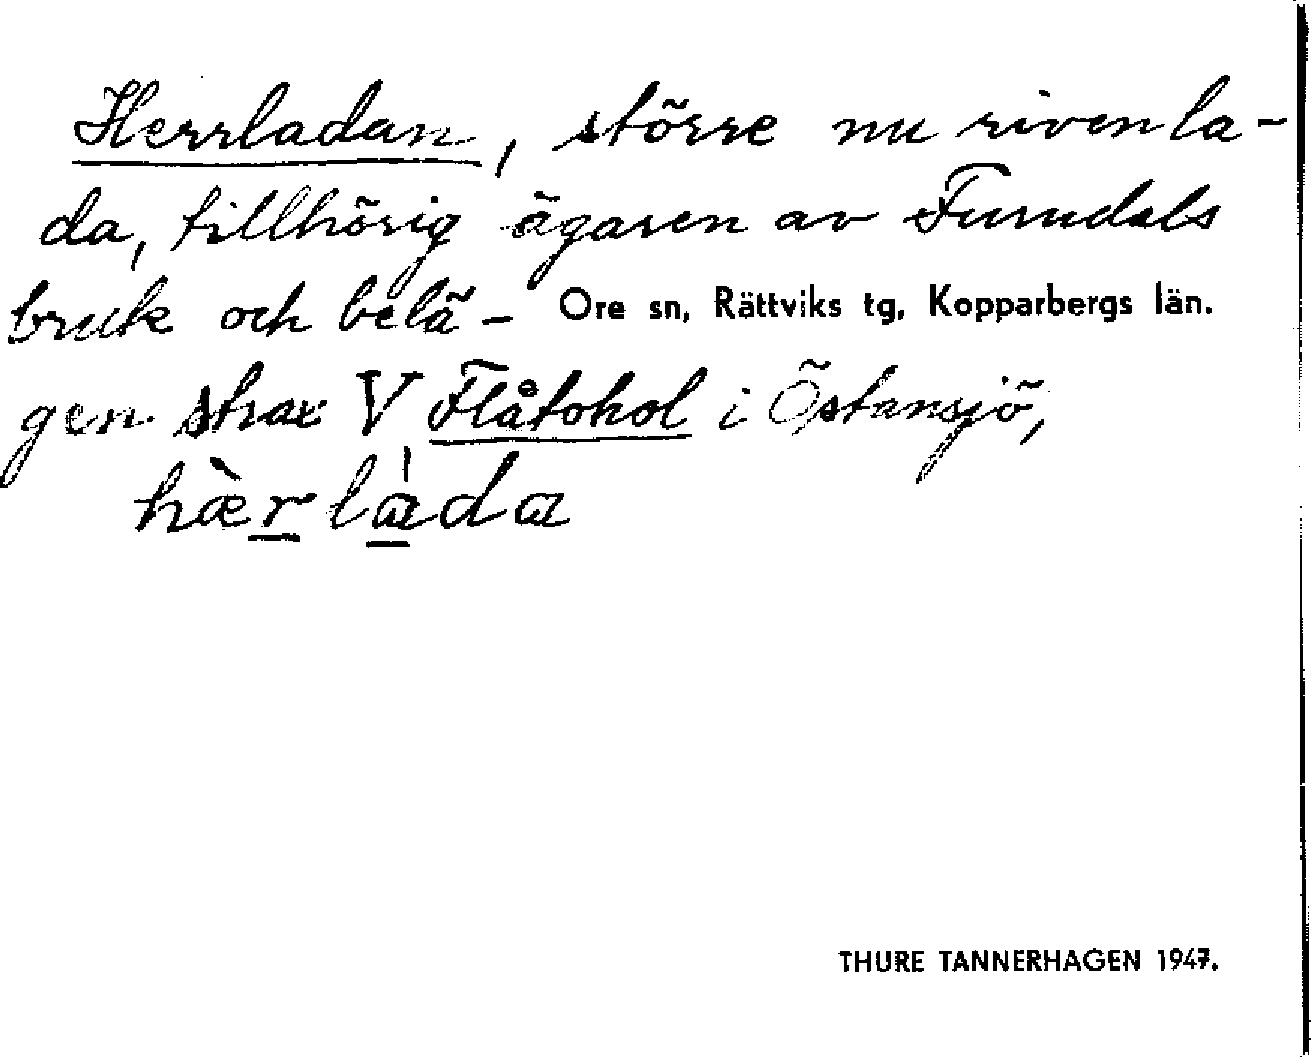 Herrladan, större nu riven la-
da, tillhörig ägaren av Furudals
bruk och belä-
Ore sn, Rättviks tg, Kopparbergs län.
gen strax V Flåtohol i Östansjö,
hæ̀rlàda
THURE TANNERHAGEN 1947.